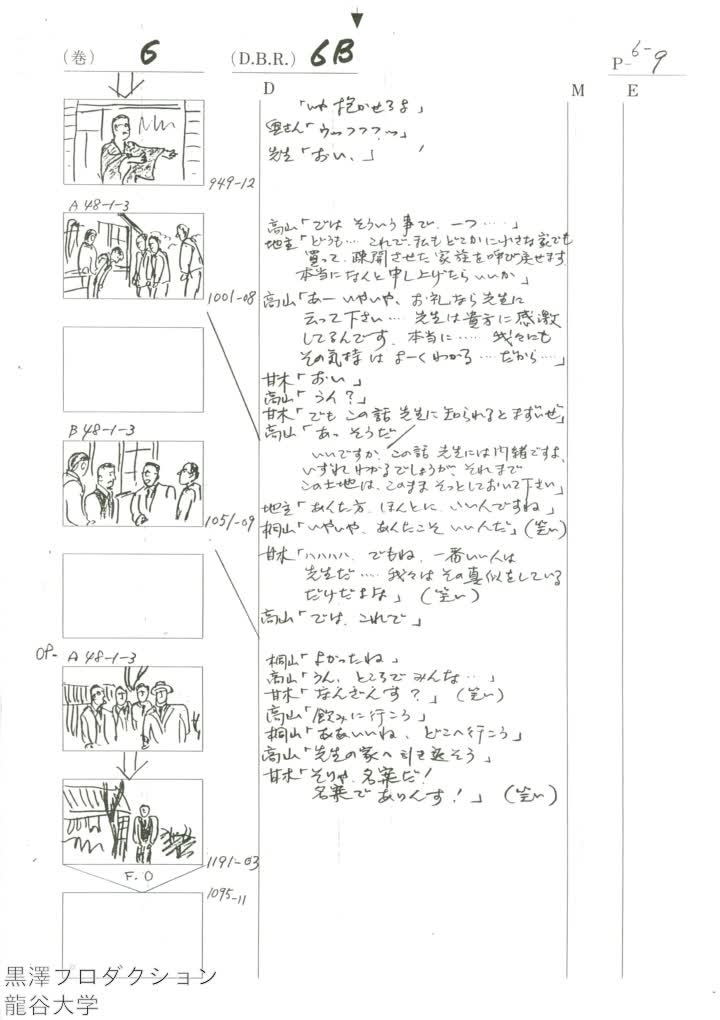 (巻) 6 (D.B.R.) 6B P-6-9
D M E
「いや 抱かせろよ」
奥さん「ウッフフフッ」
先生「おい、」
949-12
A 48-1-3
高山「では そういう事で、一つ……」
地主「どうも… これで、私も どこかに小さな家でも
買って、疎開させた家族を呼び戻せます
本当になんと申し上げたらいいか」
1001-08
高山「あー いやいや、お礼なら先生に
云って下さい… 先生は貴方に感激
してるんです、本当に…… 我々にも
その気持は よーくわかる …だから…」
甘木「おい」
高山「うん?」
甘木「でも この話 先生に知られるとまずいぜ」
高山「あっ そうだ
B 48-1-3
いいですか、この話 先生には内緒ですよ、
いずれわかるでしょうが、それまで
この土地は、このまま そっとしておいて下さい」
地主「あんた方、ほんとに、いい人ですね」
桐山「いやいや、あんたこそ いい人だ」(笑い)
1051-09
甘木「ハハハハ、でもね、一番いい人は
先生だ…… 我々は その真似をしている
だけだよな」 (笑い)
高山「では、これで」
OP- A 48-1-3
桐山「よかったね」
高山「うん、ところでみんな…」
甘木「なんざんす?」 (笑い)
高山「飲みに行こう」
桐山「ああいいね、どこへ行こう」
高山「先生の家へ引き返そう」
甘木「そりゃ、名案だ!
名案で ありんす!」 (笑い)
1191-03
F.O
1095-11
黒澤プロダクション
龍谷大学